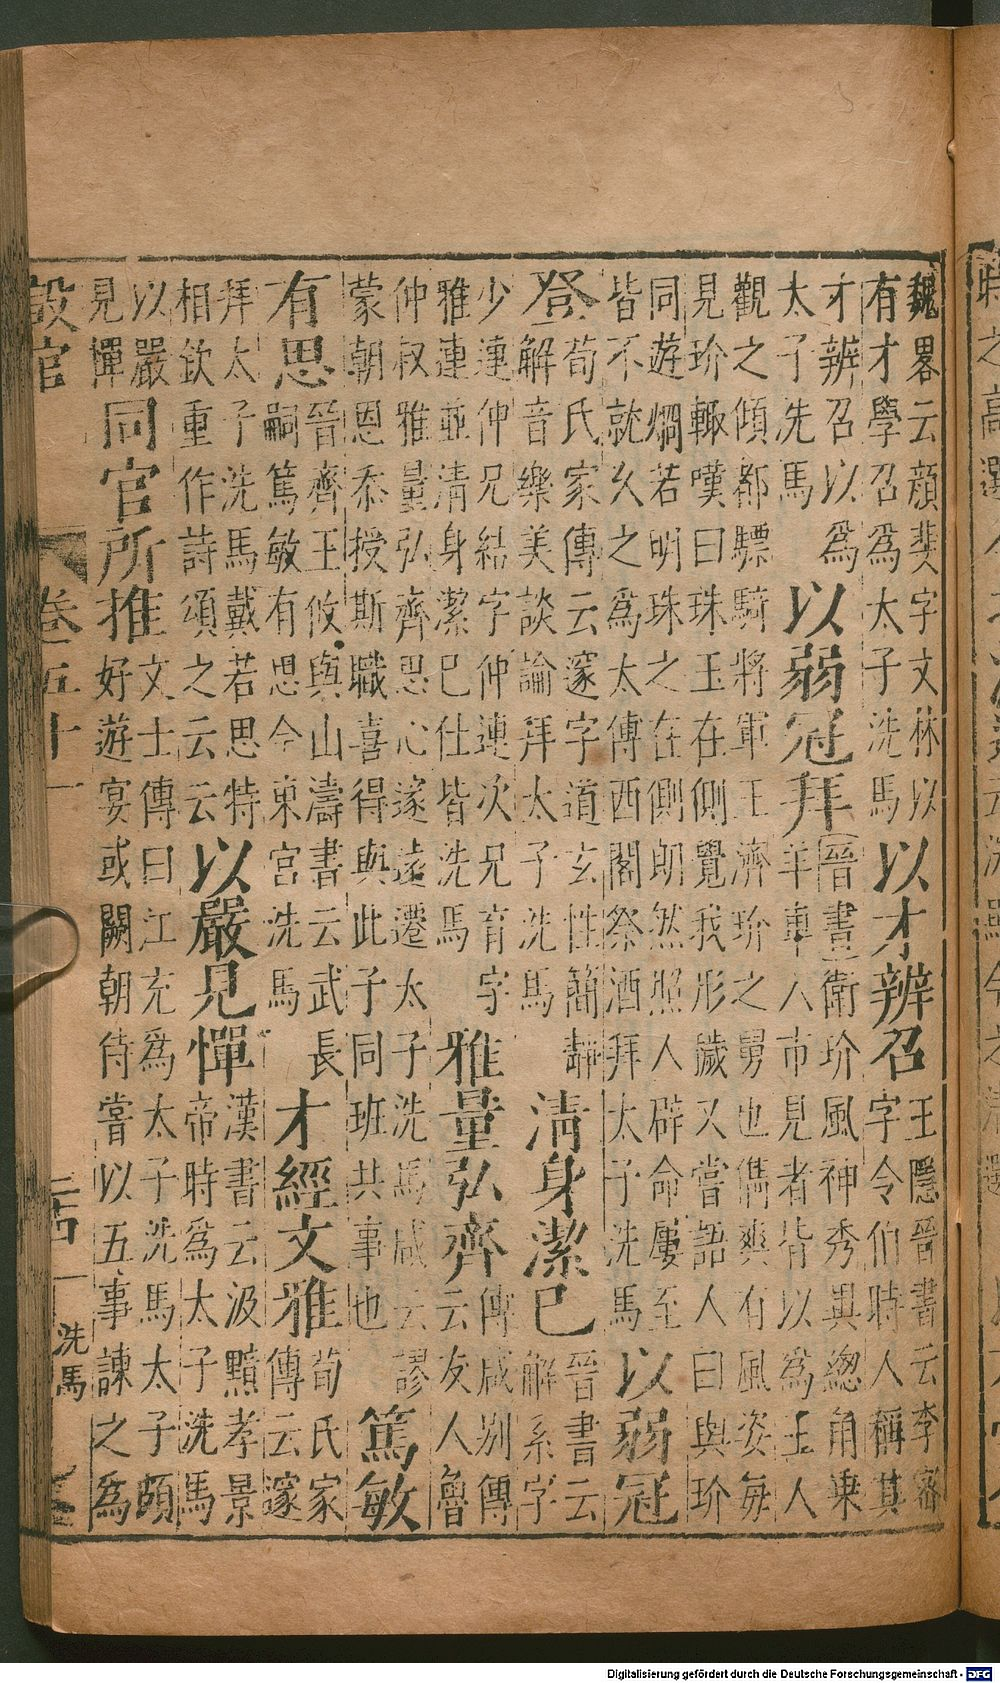 魏畧云顔斐字文林以
有才學召爲太子洗馬
以才辨召
王隱晉書云李密
字令伯時人稱其
才辨召以爲
太子洗馬
以弱冠拜
晉書衛玠風神秀異總角乗
羊車入市見者皆以爲玉人
觀之傾都驃騎將軍王濟玠之舅也儁爽有風姿毎
見玠輙嘆曰珠玉在側覺我形穢又嘗語人曰與玠
同遊爛若明珠之在側朗然照人辟命屢至
皆不就久之爲太傅西閣祭酒拜太子洗馬
以弱冠
登
荀氏家傳云邃字道玄性簡靜
解音樂美談論拜太子洗馬
清身潔已
晉書云
解系字
少連仲兄結字仲連次兄育字
雅連並清身潔已仕皆洗馬
雅量弘齊
傅咸别傳
云友人魯
仲叔雅量弘齊思心遂遠遷太子洗馬咸云謬
蒙朝恩忝授斯職喜得與此子同班共事也
篤敏
有思
晉齊王攸與山濤書云武長
嗣篤敏有思今東宮洗馬
才經文雅
荀氏家
傳云邃
拜太子洗馬戴若思特
相欽重作詩頌之云云
以嚴見憚
漢書云汲黯孝景
帝時爲太子洗馬
以嚴
見憚
同官所推
文士傳曰江充爲太子洗馬太子頗
好遊宴或闕朝侍嘗以五事諫之爲
設官
卷五十一
洗馬
Digitalisierung gefördert durch die Deutsche Forschungsgemeinschaft - DFG